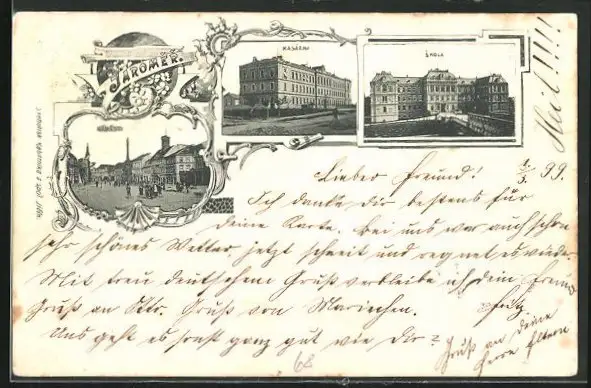 JAROMĚR.
KASÁRNA
ŠKOLA
NÁMĚSTÍ
Heil!!!!
1/3. 99.
Lieber Freund!
Ich danke dir bestens für
deine Karte. Bei uns war auch schon
sehr schönes Wetter jetzt schneit und regnet es wieder
Mit treu deutschem Gruß verbleibe ich dein Freund
Gruß an Gruß von Mariechen. Fritz
Uns geht es sonst ganz gut wie dir?
Gruß an deine
Herrn Eltern
68